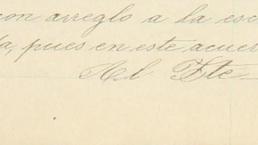 con arreglo a la esc
da, pues en este acuer
Al Fte